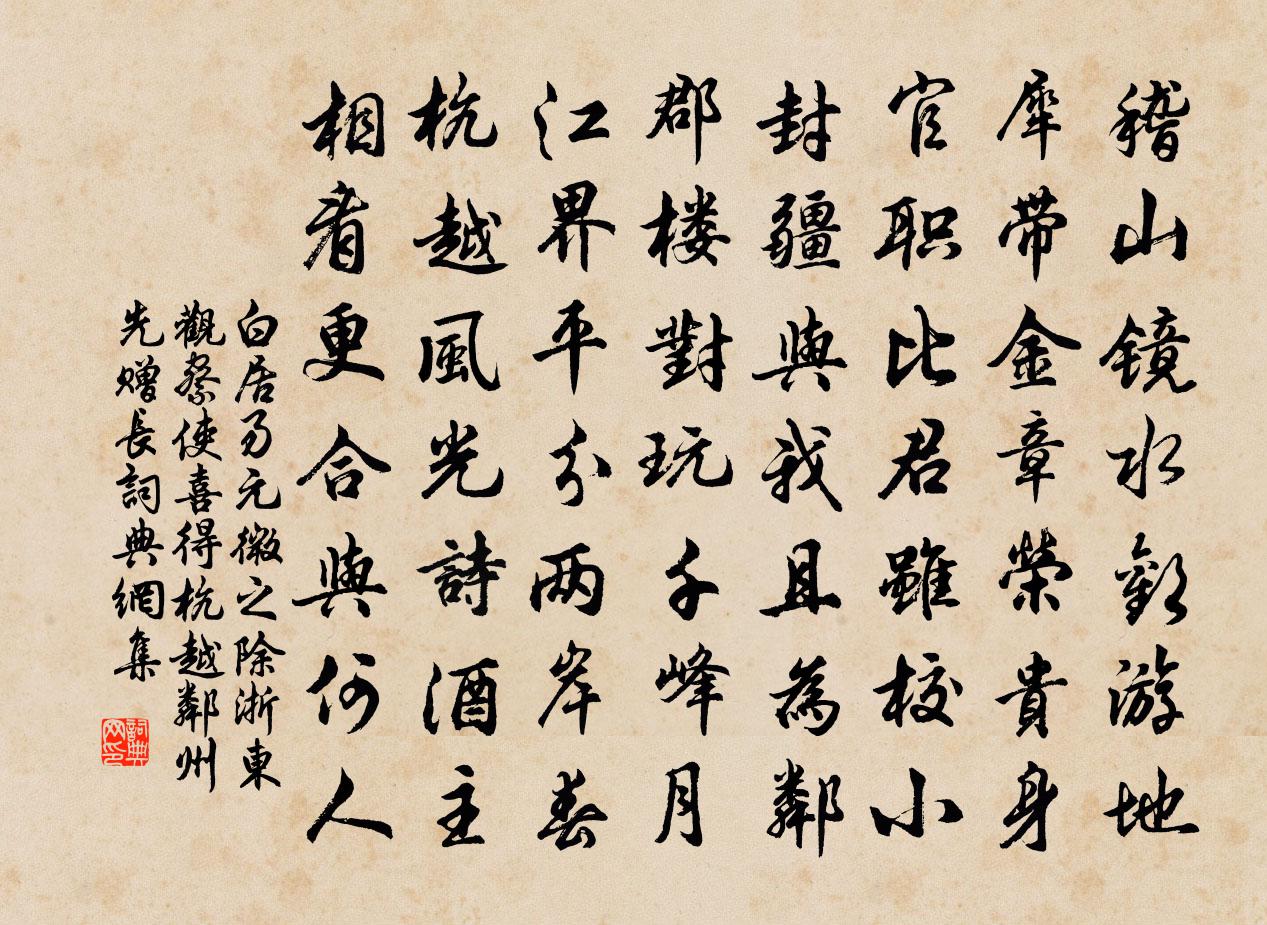 稽山镜水歡游地
犀带金章榮貴身
官职比君雖校小
封疆與我且為鄰
郡楼對玩千峰月
江界平分两岸春
杭越風光詩酒主
相看更合與何人
白居易元微之除浙東
觀察使喜得杭越鄰州
先贈長詞典網集
詞典
网印